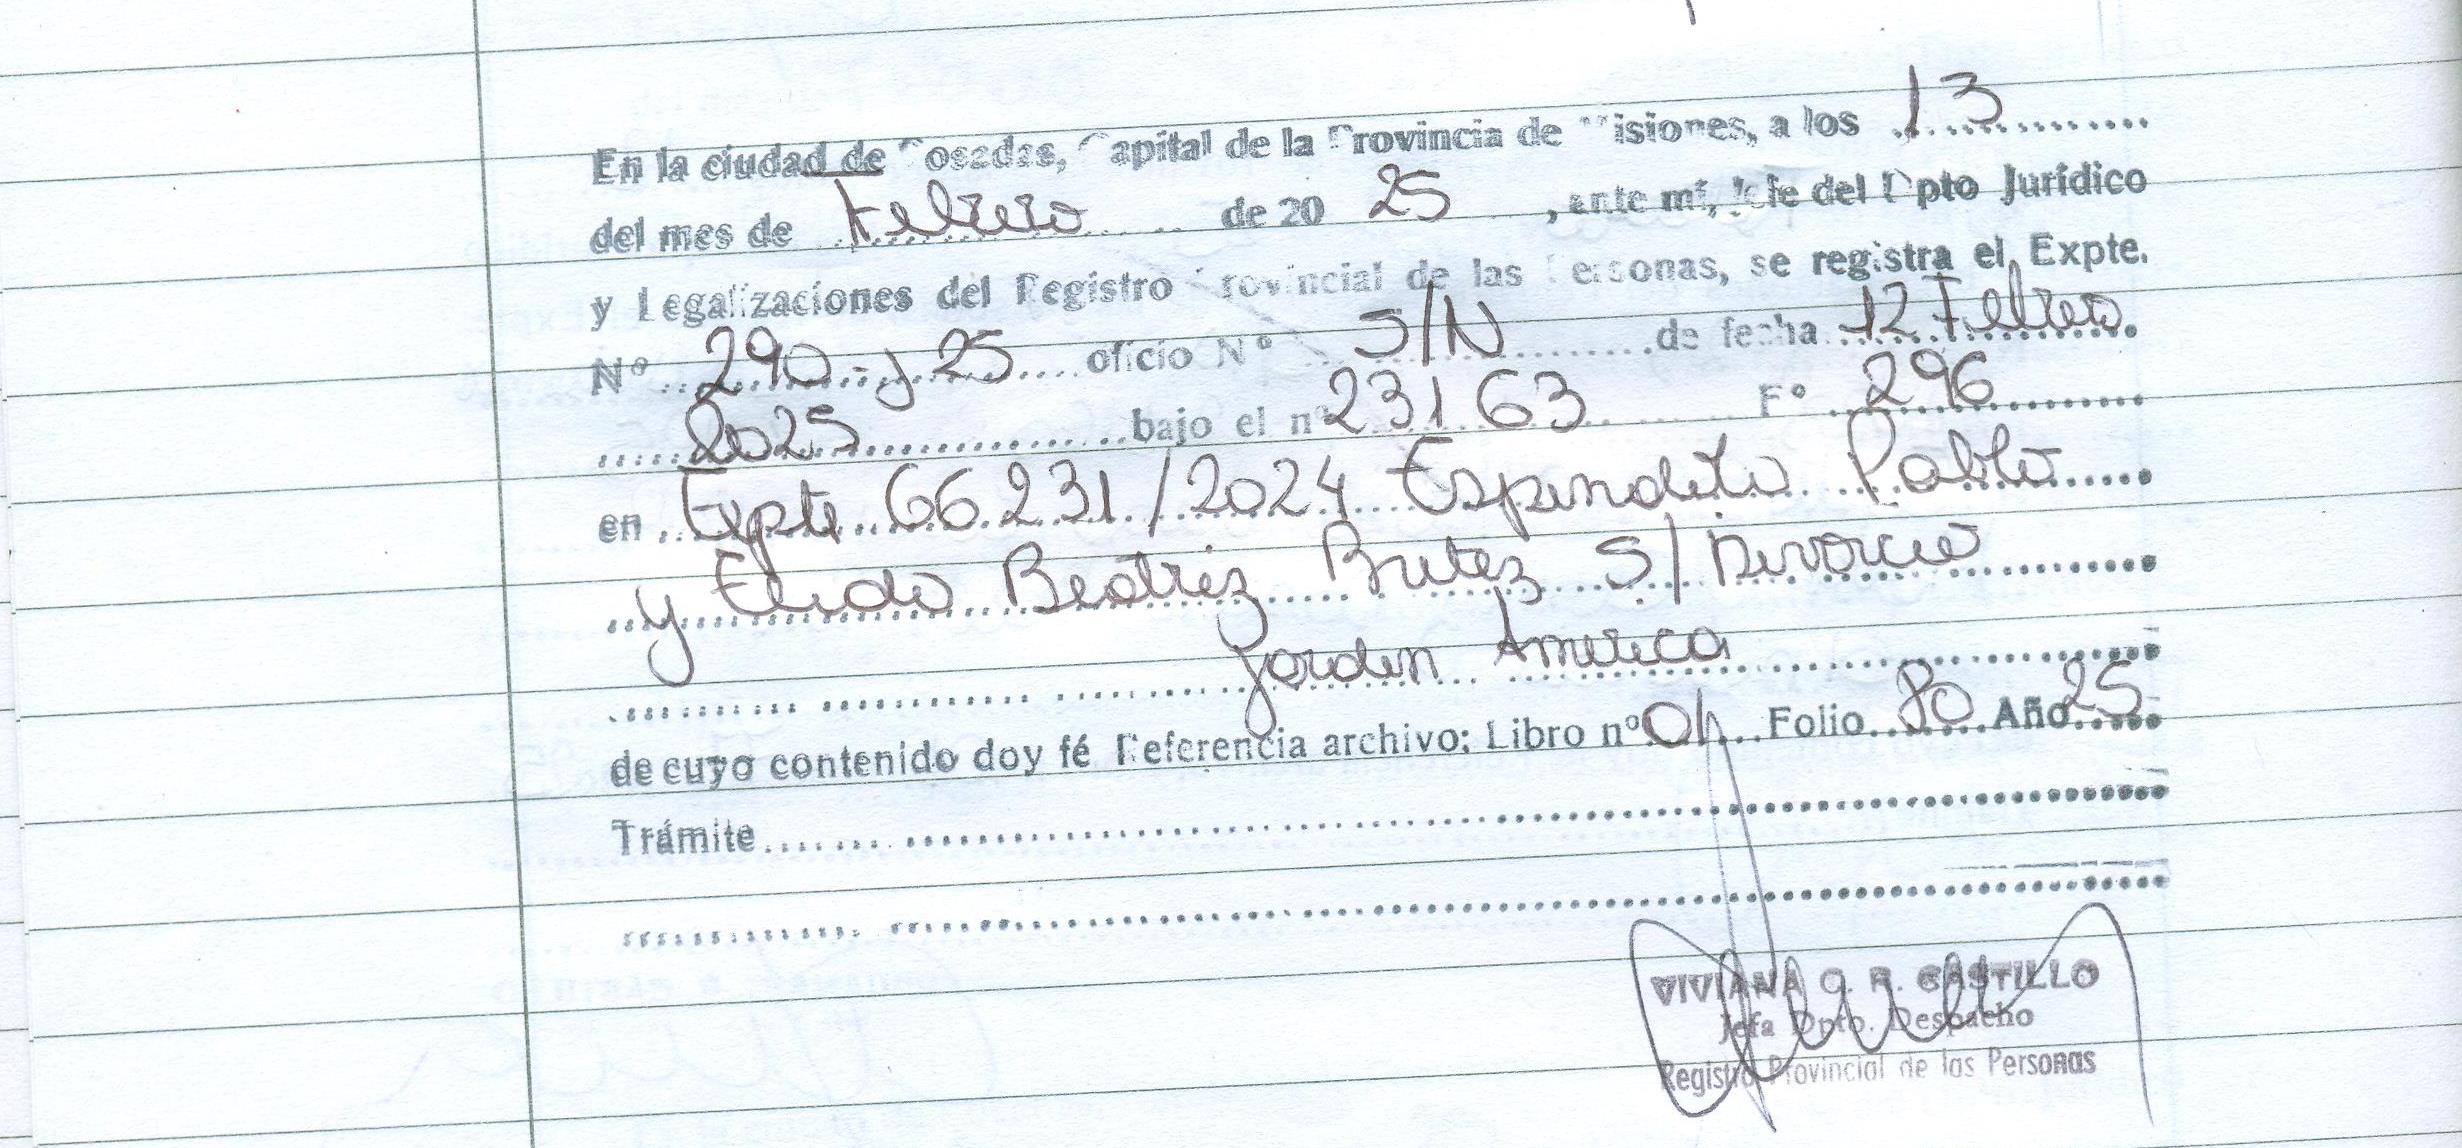 En la ciudad de Posadas, Capital de la Provincia de Misiones, a los 13
del mes de Febrero de 20 25, ante mí, Jefe del Dpto Jurídico
y Legalizaciones del Registro Provincial de las Personas, se registra el Expte.
N° 290-J-25 oficio N° S/N de fecha 12 Febrero
2025 bajo el n° 23163 F° 296
en Expte 66.231/2024 Espindola Pablo
y Elida Beatriz Britez S/ Divorcio
Jardin America
de cuyo contenido doy fé Referencia archivo: Libro n° 01 Folio 80 Año 25
Trámite
VIVIANA C. R. CASTILLO
Jefa Dpto. Despacho
Registro Provincial de las Personas